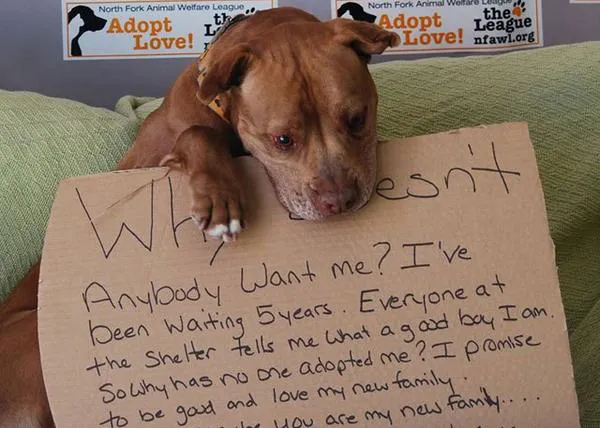 North Fork Animal Welfare League
Adopt
Love!
the
North Fork Animal Welfare League
Adopt
Love!
the
League
nfawl.org
Why esn't
Anybody Want me? I've
been waiting 5 years. Everyone at
the Shelter tells me what a good boy I am.
So why has no one adopted me? I promise
to be good and love my new family.
you are my new family....